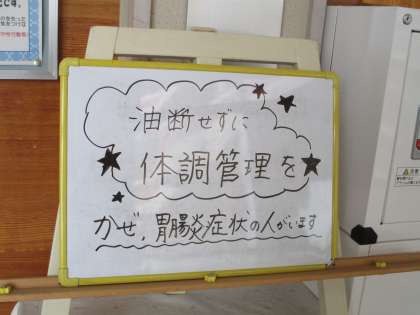 油断せずに
体調管理を
かぜ、胃腸炎症状の人がいます